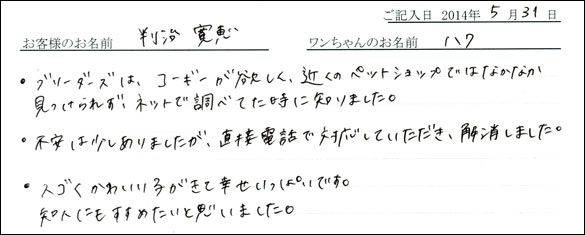 ご記入日 2014年 5月 31日
お客様のお名前 判治 寛恵 ワンちゃんのお名前 ハク
• ブリーダーズは、コーギーが欲しく、近くのペットショップではなかなか
見つけられず、ネットで調べてた時に知りました。
• 不安は少しありましたが、直接電話で対応していただき、解消しました。
• スゴくかわいい子がきて幸せいっぱいです。
知人にもすすめたいと思いました。